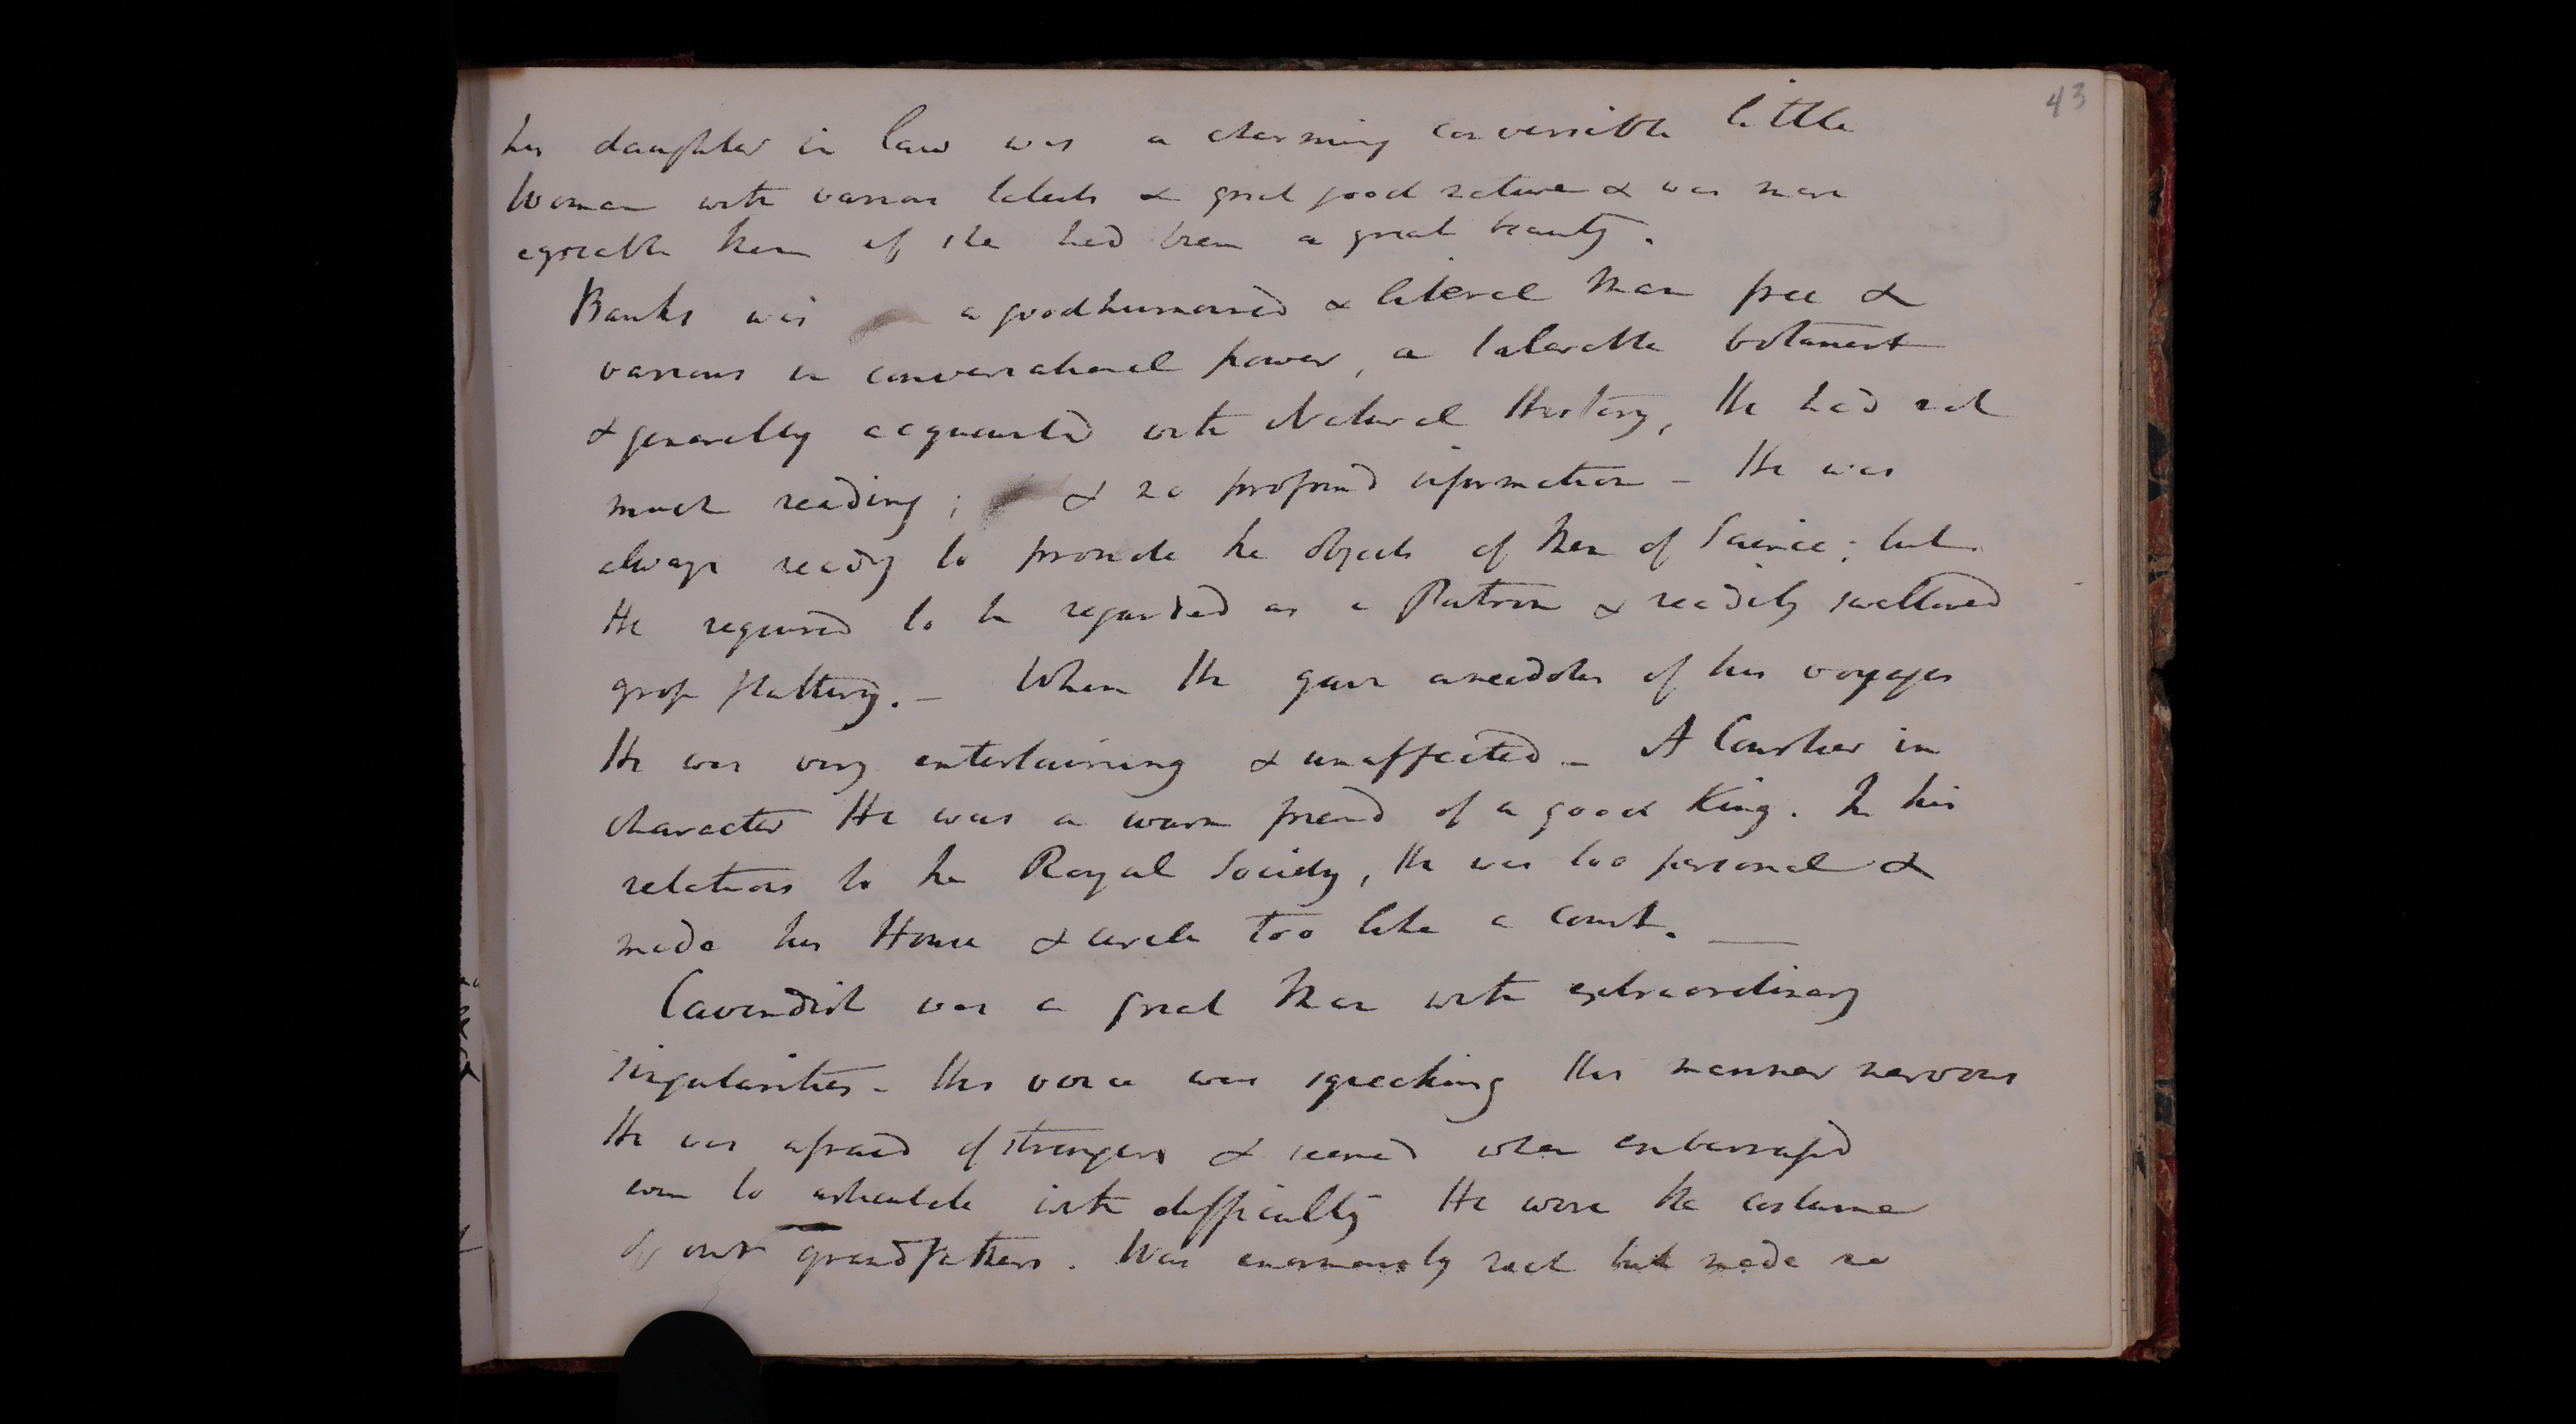 43
his daughter in law was a charming conversible little
Woman with various talents & great good nature & was more
agreable than if she had been a great beauty.
Banks was a goodhumoured & liberal Man free &
various in conversational power, a tolerable botanist
& generally acquainted with Natural History, He had not
much reading; & no profound information - He was
always ready to promote the objects of Men of Science; but
He required to be regarded as a Patron & readily swallowed
gross flattery. - When He gave anecdotes of his voyages
He was very entertaining & unaffected - A Courtier in
character He was a warm friend of a good King. In his
relations to the Royal Society, He was too personal &
made his House & circle too like a court. —
Cavendish was a great Man with extraordinary
singularities - His voice was squeaking His manner nervous
He was afraid of strangers & seemed when embarrassed
even to articulate with difficulty He wore the costume
of our grandfathers. Was enormously rich but made no